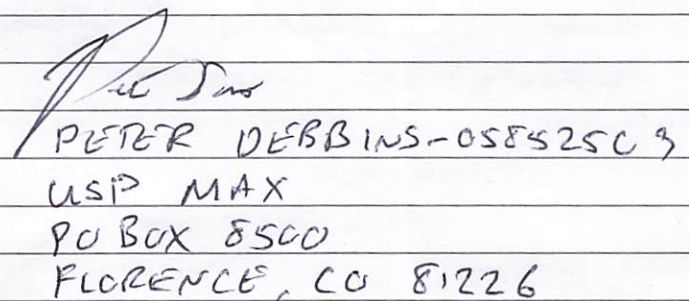 PETER DEBBINS-05852509
USP MAX
PO BOX 8500
FLORENCE, CO 81226